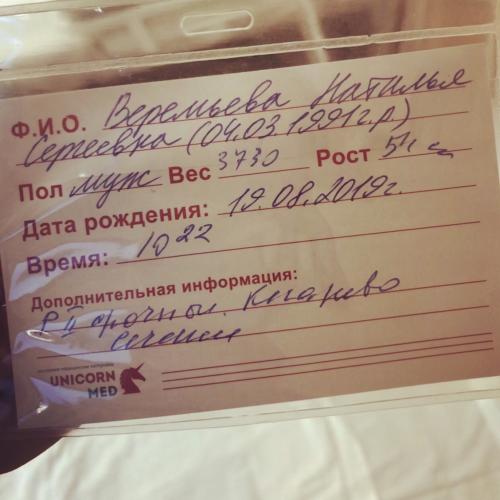 Ф.И.О. Веремьева Наталья
Сергеевна (04.03 1991г.р)
Пол муж Вес 3730 Рост 54 см
Дата рождения: 19.08.2019г.
Время: 10 22
Дополнительная информация:
P II срочные. Кесарево
сечение
UNICORN
MED